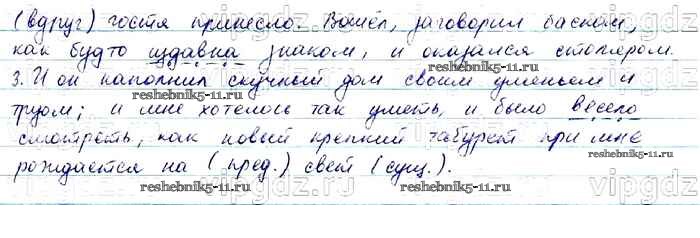 (вдруг) гостя принесло. Вошёл, заговорил баском,
как будто издавна знаком, и оказался столяром.
3. И он наполнил скучный дом своим уменьем и
reshebnik5-11.ru reshebnik5-11.ru
трудом; и мне хотелось так уметь, и было весело
смотреть, как новый крепкий табурет при мне
рождается на (пред.) свет (сущ.).
reshebnik5-11.ru reshebnik5-11.ru
vipgdz.ru